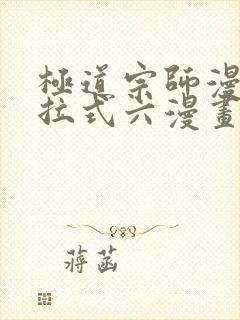 極道宗師漫
拉式六漫畫
蔣菡